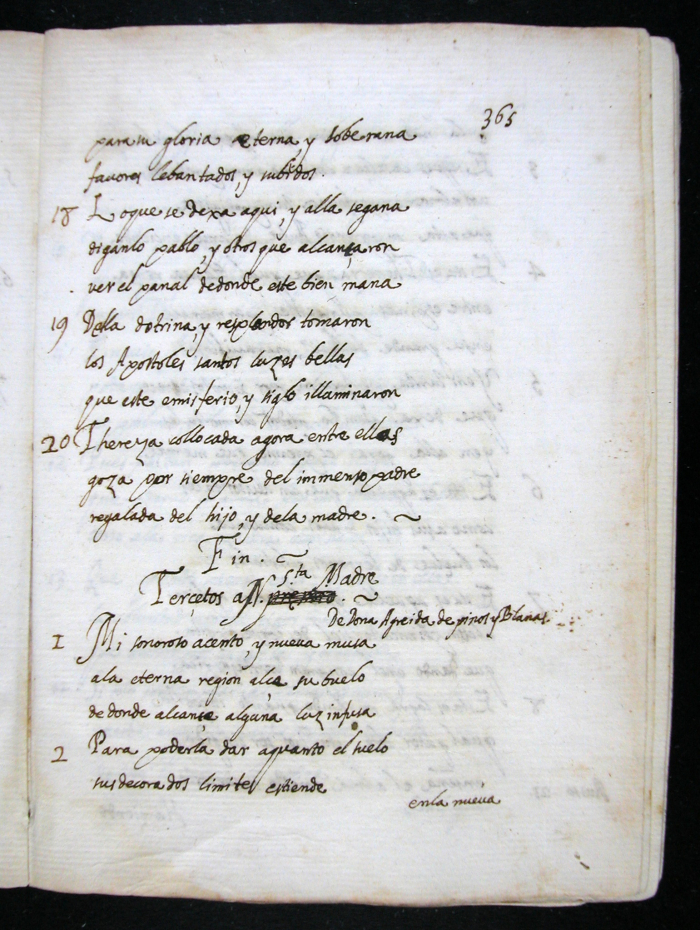 365
para su gloria eterna, y soberana
favores lebantados, y subidos.
18 Lo que se dexa aqui, y alla se gana
diganlo pablo, y otros que alcançaron
ver el panal de donde este bien mana
19 Della dotrina, y resplandor tomaron
los Apostoles santos luzes bellas
que este emisferio, y siglo illuminaron
20 Thereza collocada agora entre ellas
goza por siempre del immenso padre
regalada del hijo, y de la madre.
Fin.
Tercetos a N. Sta Madre
De Dona Agreida de pinos y Blanas
1 Mi sonoroso acento, y nueva musa
a la eterna region alce su buelo
de donde alcançe alguna luz infusa
2 Para poderla dar a quanto el suelo
sus decorados limites estiende
en la nueva